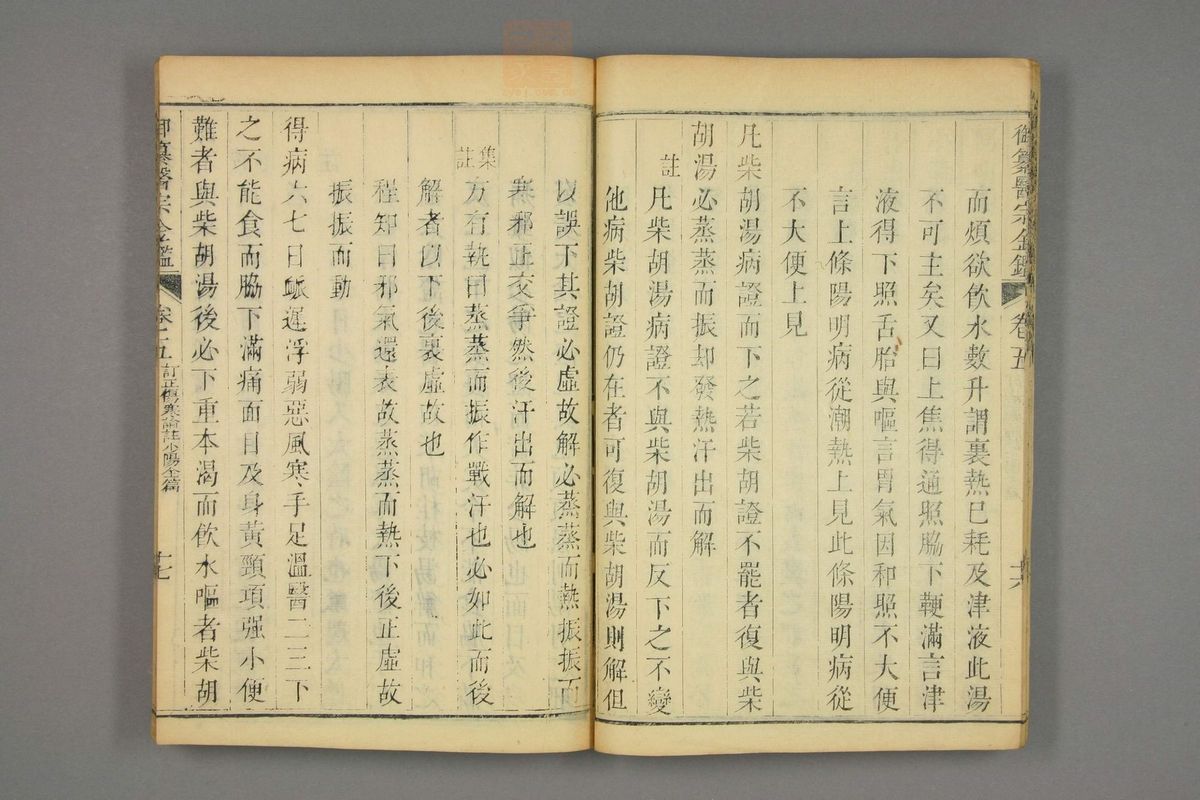 御纂醫宗金鑑 卷五 十六
而煩欲飲水數升謂裏熱已耗及津液此湯
不可主矣又曰上焦得通照脇下鞕滿言津
液得下照舌胎與嘔言胃氣因和照不大便
言上條陽明病從潮熱上見此條陽明病從
不大便上見
凡柴胡湯病證而下之若柴胡證不罷者復與柴
胡湯必蒸蒸而振却發熱汗出而解
註
凡柴胡湯病證不與柴胡湯而反下之不變
他病柴胡證仍在者可復與柴胡湯則解但
以誤下其證必虛故解必蒸蒸而熱振振而
寒邪正交爭然後汗出而解也
集註
方有執曰蒸蒸而振作戰汗也必如此而後
解者以下後裏虛故也
程知曰邪氣還表故蒸蒸而熱下後正虛故
振振而動
得病六七日脈遲浮弱惡風寒手足溫醫二三下
之不能食而脇下滿痛面目及身黃頸項强小便
難者與柴胡湯後必下重本渴而飲水嘔者柴胡
御纂醫宗金鑑 卷之五 訂正傷寒論註少陽全篇 十七